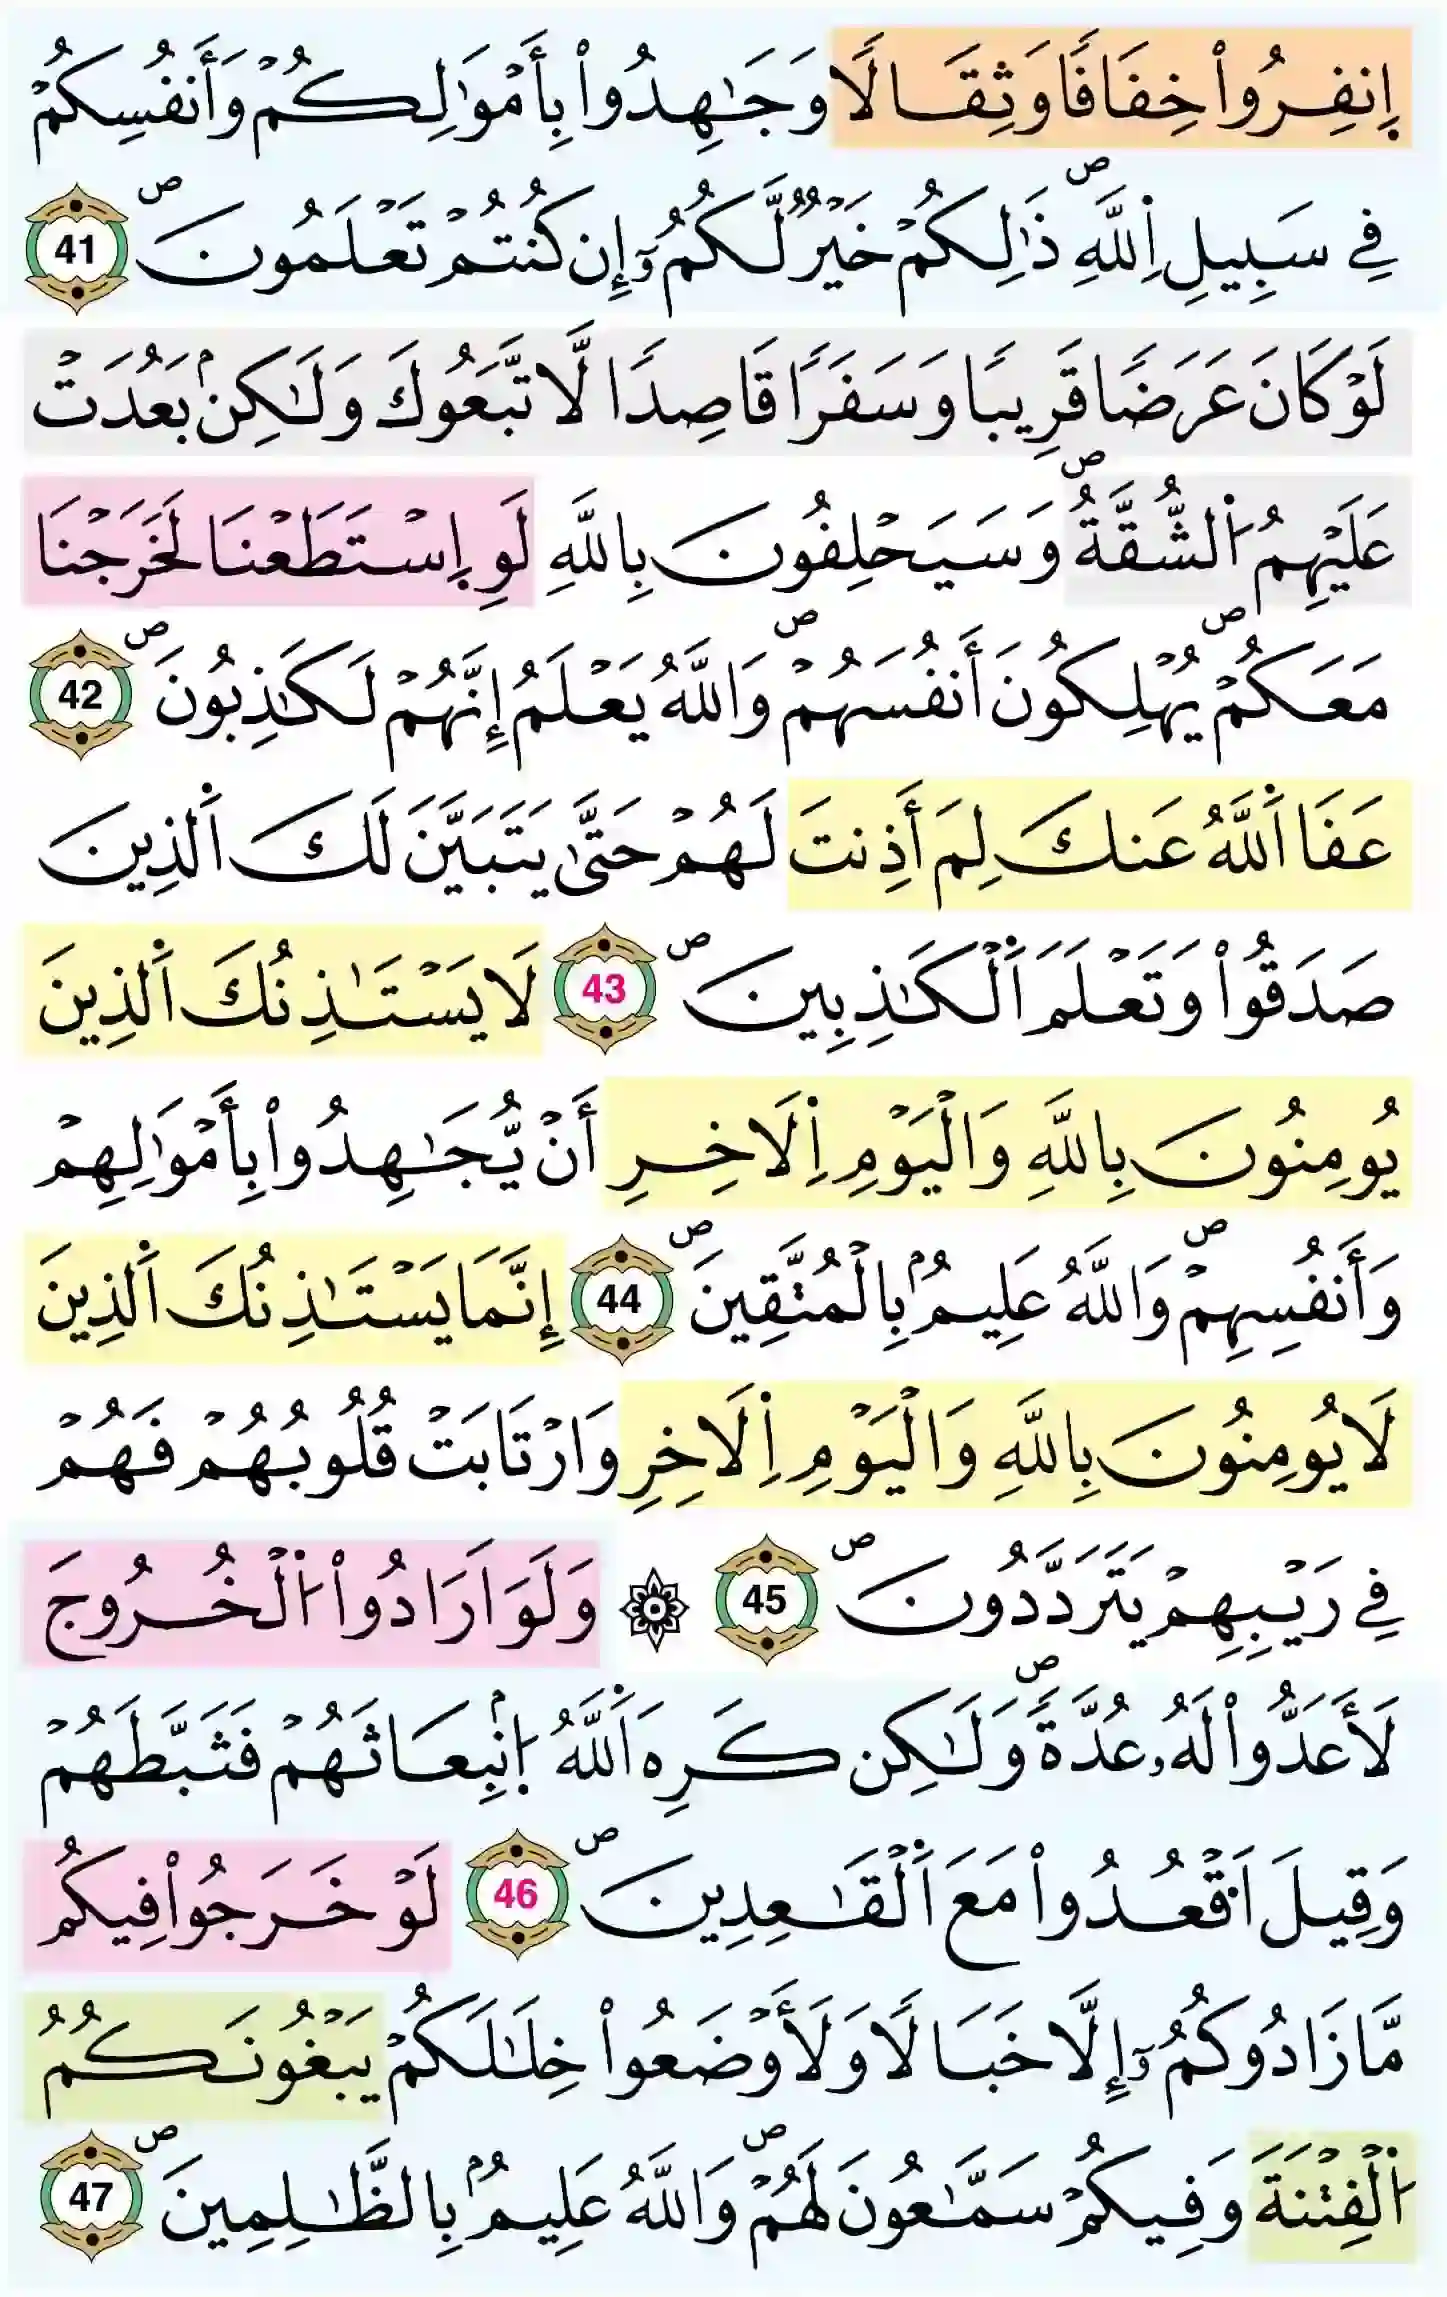 اِ۪نفِرُواْ خِفَافٗا وَثِقَالٗا وَجَٰهِدُواْ بِأَمْوَٰلِكُمْ وَأَنفُسِكُمْ
فِے سَبِيلِ اِ۬للَّهِۖ ذَٰلِكُمْ خَيْرٞ لَّكُمُۥٓ إِن كُنتُمْ تَعْلَمُونَۖ 41
لَوْ كَانَ عَرَضٗا قَرِيبٗا وَسَفَرٗا قَاصِدٗا لَّاتَّبَعُوكَ وَلَٰكِنۢ بَعُدَتْ
عَلَيْهِمُ اُ۬لشُّقَّةُۖ وَسَيَحْلِفُونَ بِاللَّهِ لَوِ اِ۪سْتَطَعْنَا لَخَرَجْنَا
مَعَكُمْۖ يُهْلِكُونَ أَنفُسَهُمْۖ وَاللَّهُ يَعْلَمُ إِنَّهُمْ لَكَٰذِبُونَۖ 42
عَفَا اَ۬للَّهُ عَنكَ لِمَ أَذِنتَ لَهُمْ حَتَّىٰ يَتَبَيَّنَ لَكَ اَ۬لذِينَ
صَدَقُواْ وَتَعْلَمَ اَ۬لْكَٰذِبِينَۖ 43 لَا يَسْتَٰذِنُكَ اَ۬لذِينَ
يُومِنُونَ بِاللَّهِ وَالْيَوْمِ اِ۬لَاخِرِ أَنْ يُّجَٰهِدُواْ بِأَمْوَٰلِهِمْ
وَأَنفُسِهِمْۖ وَاللَّهُ عَلِيمُۢ بِالْمُتَّقِينَۖ 44 إِنَّمَا يَسْتَٰذِنُكَ اَ۬لذِينَ
لَا يُومِنُونَ بِاللَّهِ وَالْيَوْمِ اِ۬لَاخِرِ وَارْتَابَتْ قُلُوبُهُمْ فَهُمْ
فِے رَيْبِهِمْ يَتَرَدَّدُونَۖ 45 ۞ وَلَوَ اَرَادُواْ اُ۬لْخُرُوجَ
لَأَعَدُّواْ لَهُۥ عُدَّةٗۖ وَلَٰكِن كَرِهَ اَ۬للَّهُ اُ۪نۢبِعَاثَهُمْ فَثَبَّطَهُمْ
وَقِيلَ اَ۟قْعُدُواْ مَعَ اَ۬لْقَٰعِدِينَۖ 46 لَوْ خَرَجُواْ فِيكُم
مَّا زَادُوكُمُۥٓ إِلَّا خَبَالٗا وَلَأَوْضَعُواْ خِلَٰلَكُمْ يَبْغُونَكُمُ
اُ۬لْفِتْنَةَ وَفِيكُمْ سَمَّٰعُونَ لَهُمْۖ وَاللَّهُ عَلِيمُۢ بِالظَّٰلِمِينَۖ 47